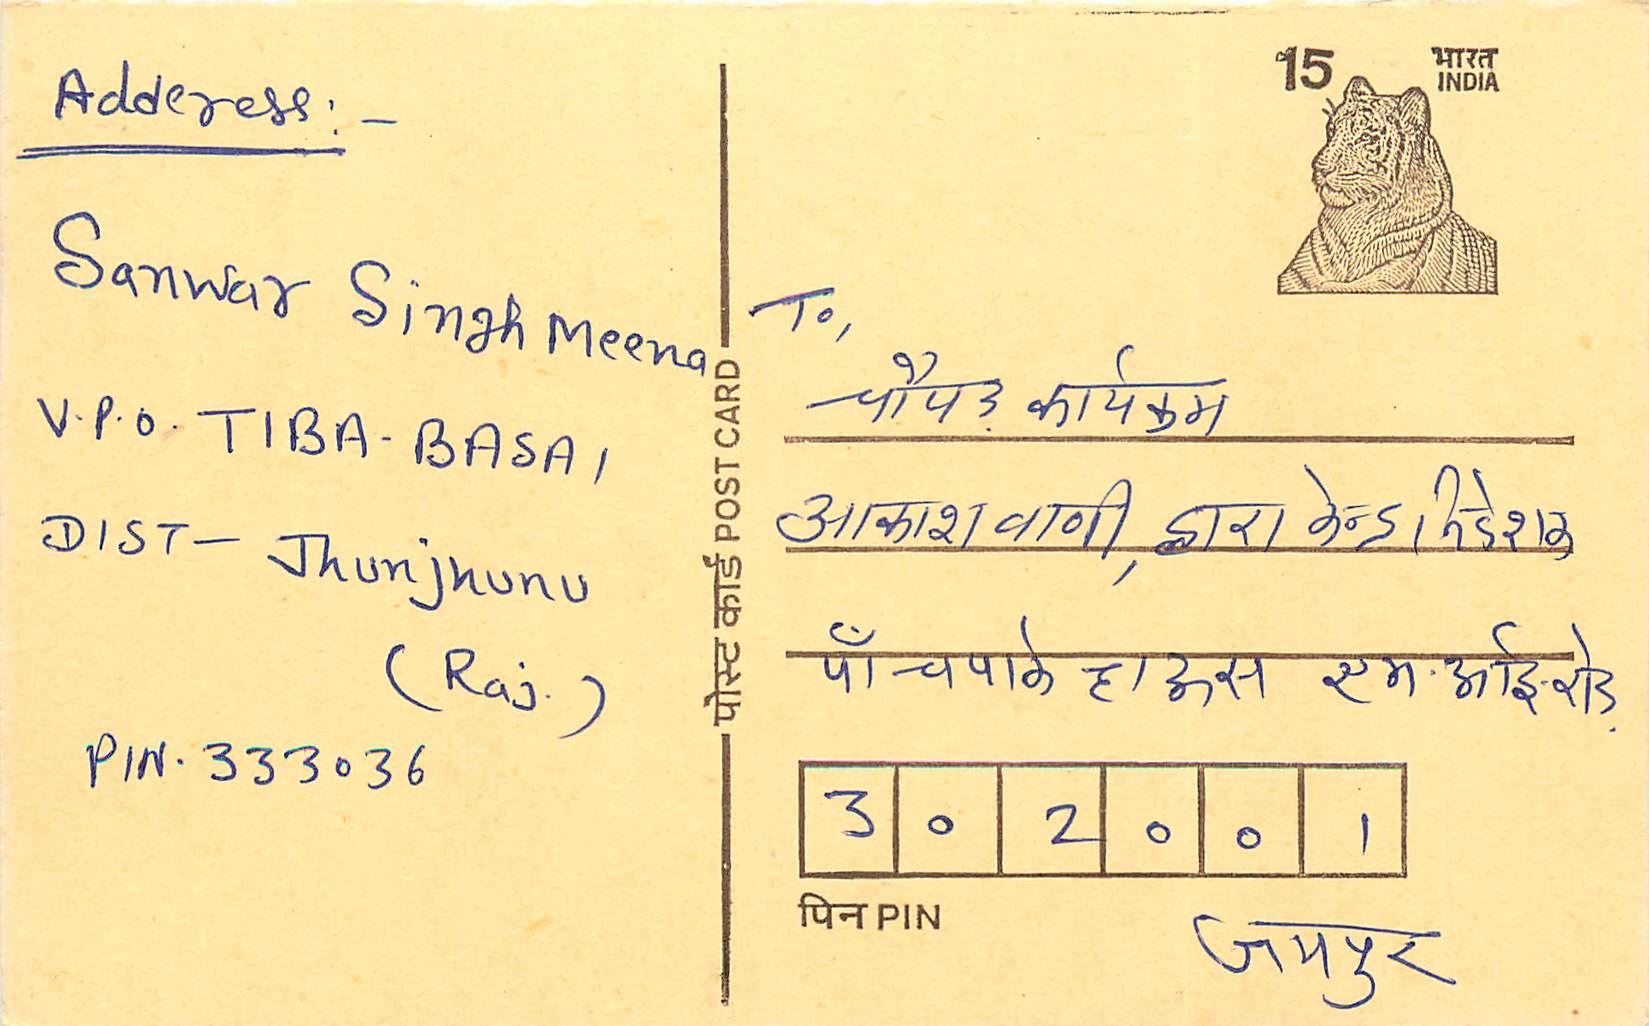 Adderess:-
Sanwar Singh Meena
V.P.O. TIBA-BASAI
DIST- Jhunjhunu
(Raj.)
PIN. 333036
पोस्ट कार्ड POST CARD
15 भारत
INDIA
To,
चौपड़ कार्यक्रम
आकाशवाणी, द्वारा केन्द्र निदेशक
पाँचपाके हाऊस एम.आई.रोड़.
3 0 2 0 0 1
पिन PIN
जयपुर